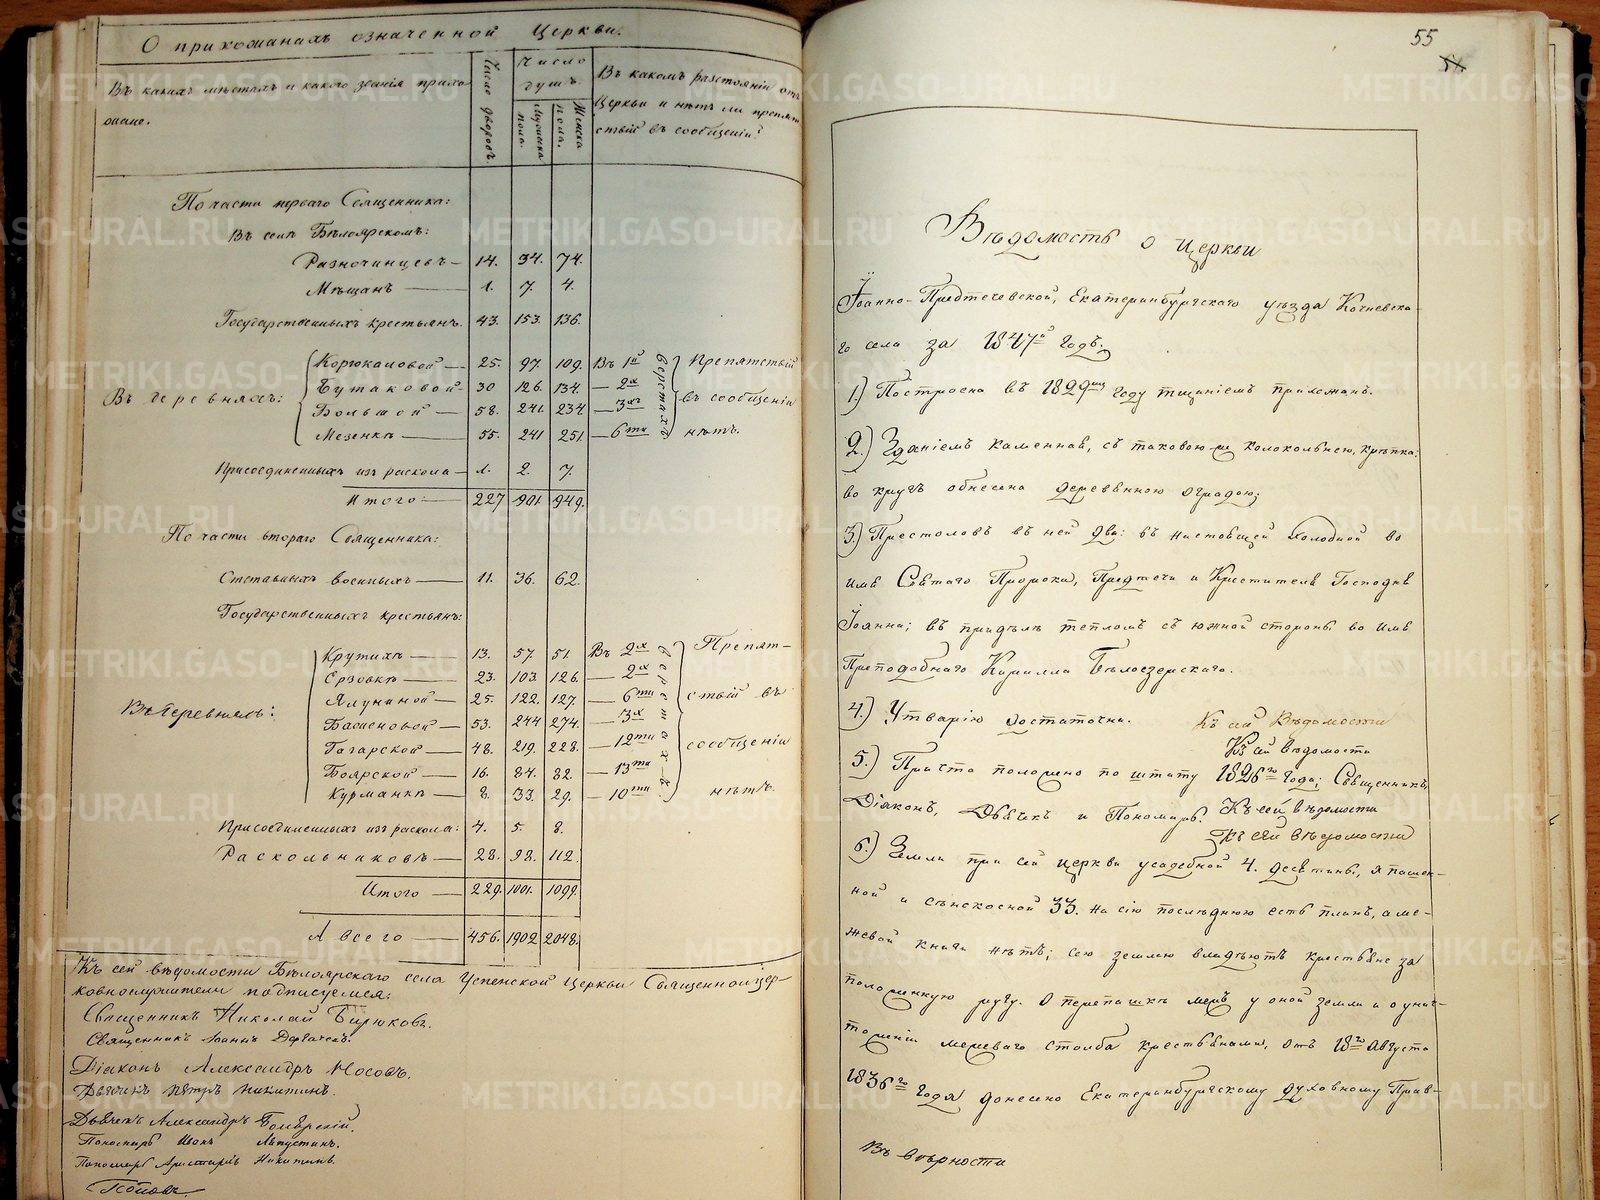 О прихожанахъ означенной Церкви.
Въ какихъ мѣстахъ и какого званія прихо-
жане.
Число дворовъ.
Число
душъ.
Мужска
пола.
Женска
пола.
Въ какомъ разстояніи отъ
Церкви и нѣтъ ли препят
ствій въ сообщеніи?
По части перваго Священника:
Въ селѣ Бѣлоярскомъ:
Разночинцевъ — 14. 34. 74.
Мѣщанъ — 1. 7. 4.
Государственныхъ крестьянъ. 43. 153. 136.
Въ деревняхъ:
Корюкаловой — 25. 97. 109. Въ 1й
Бутаковой — 30 126. 134. — 2х
Большой — 58. 241. 234 — 3хъ
Мезенкѣ — 55. 241 251. — 6ти
верстахъ
Препятствій
въ сообщеніи
нѣтъ.
Присоединенныхъ изъ раскола — 1. 2. 7.
Итого — 227 901. 949.
По части втораго Священника:
Отставныхъ военныхъ — 11. 36. 62.
Государственныхъ крестьянъ:
Въ деревняхъ:
Крутихѣ — 13. 57. 51. Въ 2х
Ерзовкѣ — 23. 103. 126. — 2х
Ялуниной — 25. 122. 127. — 6ти
Баженовой — 53. 244 274. — 3х
Гагарской — 48. 219. 228. — 12ти
Боярской — 16. 84. 82. — 13ти
Курманкѣ — 8. 33. 29. — 10ти
верстахъ
Препят-
ствій въ
сообщеніи
нѣтъ.
Присоединенныхъ изъ раскола: 4. 5. 8.
Раскольниковъ — 28. 98. 112.
Итого — 229. 1001. 1099.
А всего — 456. 1902 2048.
Къ сей вѣдомости Бѣлоярскаго села Успенской Церкви Священноцер-
ковнослужители подписуемся:
Священникъ Николай Бирюковъ.
Священникъ Іоаннъ
Діаконъ Александръ Носовъ.
Дьячекъ Петръ Никитинъ.
Дьячекъ Александръ
Пономарь
Пономарь Аристархъ Никитинъ.
Поповъ.
55
Вѣдомость о Церкви
Іоанно-Предтечевской, Екатеринбургскаго уѣзда Кочневска-
го села за 1847й годъ.
1.) Построена въ 1829мъ году тщаніемъ прихожанъ.
2.) Зданіемъ каменная, съ таковою-ж колокольнею, крѣпка;
во кругъ обнесена деревянною оградою;
3.) Престоловъ въ ней два: въ настоящей холодной во
имя Святаго Пророка, Предтечи и Крестителя Господня
Іоанна; въ придѣлѣ тепломъ съ южной стороны во имя
Преподобнаго Кирилла Бѣлоезерскаго.
4.) Утварію достаточна. Къ сей Вѣдомости
Къ сей вѣдомости
5.) Причта положено по штату 1826го года; Священникъ,
Діаконъ, Дьячекъ и Пономарь. Къ сей вѣдомости
Къ сей вѣдомости
6.) Земли при сей церкви усадебной 4. десятины, а пашен-
ной и сѣнокосной 33. на сію послѣднюю есть планъ, а ме-
жевой книги нѣтъ; сею землею владѣютъ крестьяне за
положенную ругу. О перепашкѣ межъ у оной земли и о унич-
тоженіи межеваго столба крестьянами, отъ 18го Августа
1836го года донесено Екатеринбургскому духовному Прав-
Въ вѣрности